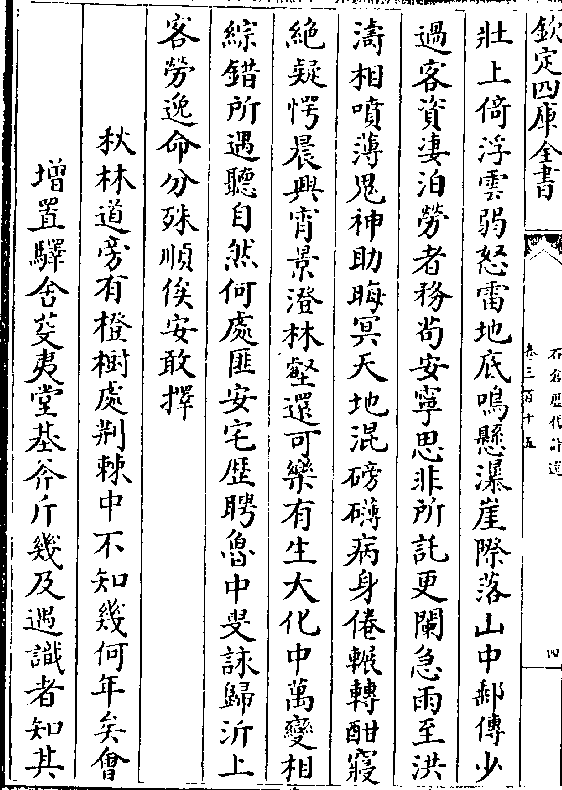 欽定四庫全書
石倉歷代詩選
卷三百十五
四
壯上倚浮雲弱怒雷地底鳴懸瀑崖際落山中郵傳少
過客資淒泊勞者務苟安寧思非所託更闌急雨至洪
濤相噴薄鬼神助晦冥天地混磅礴病身倦輾轉酣寢
絶疑愕晨興宵景澄林壑還可樂有生大化中萬變相
綜錯所遇聽自然何處匪安宅歴聘魯中叟詠歸沂上
客勞逸命分殊順俟安敢擇
秋林道旁有橙樹處荆棘中不知幾何年矣會
增置驛舍芟夷堂基斧斤幾及遇識者知其